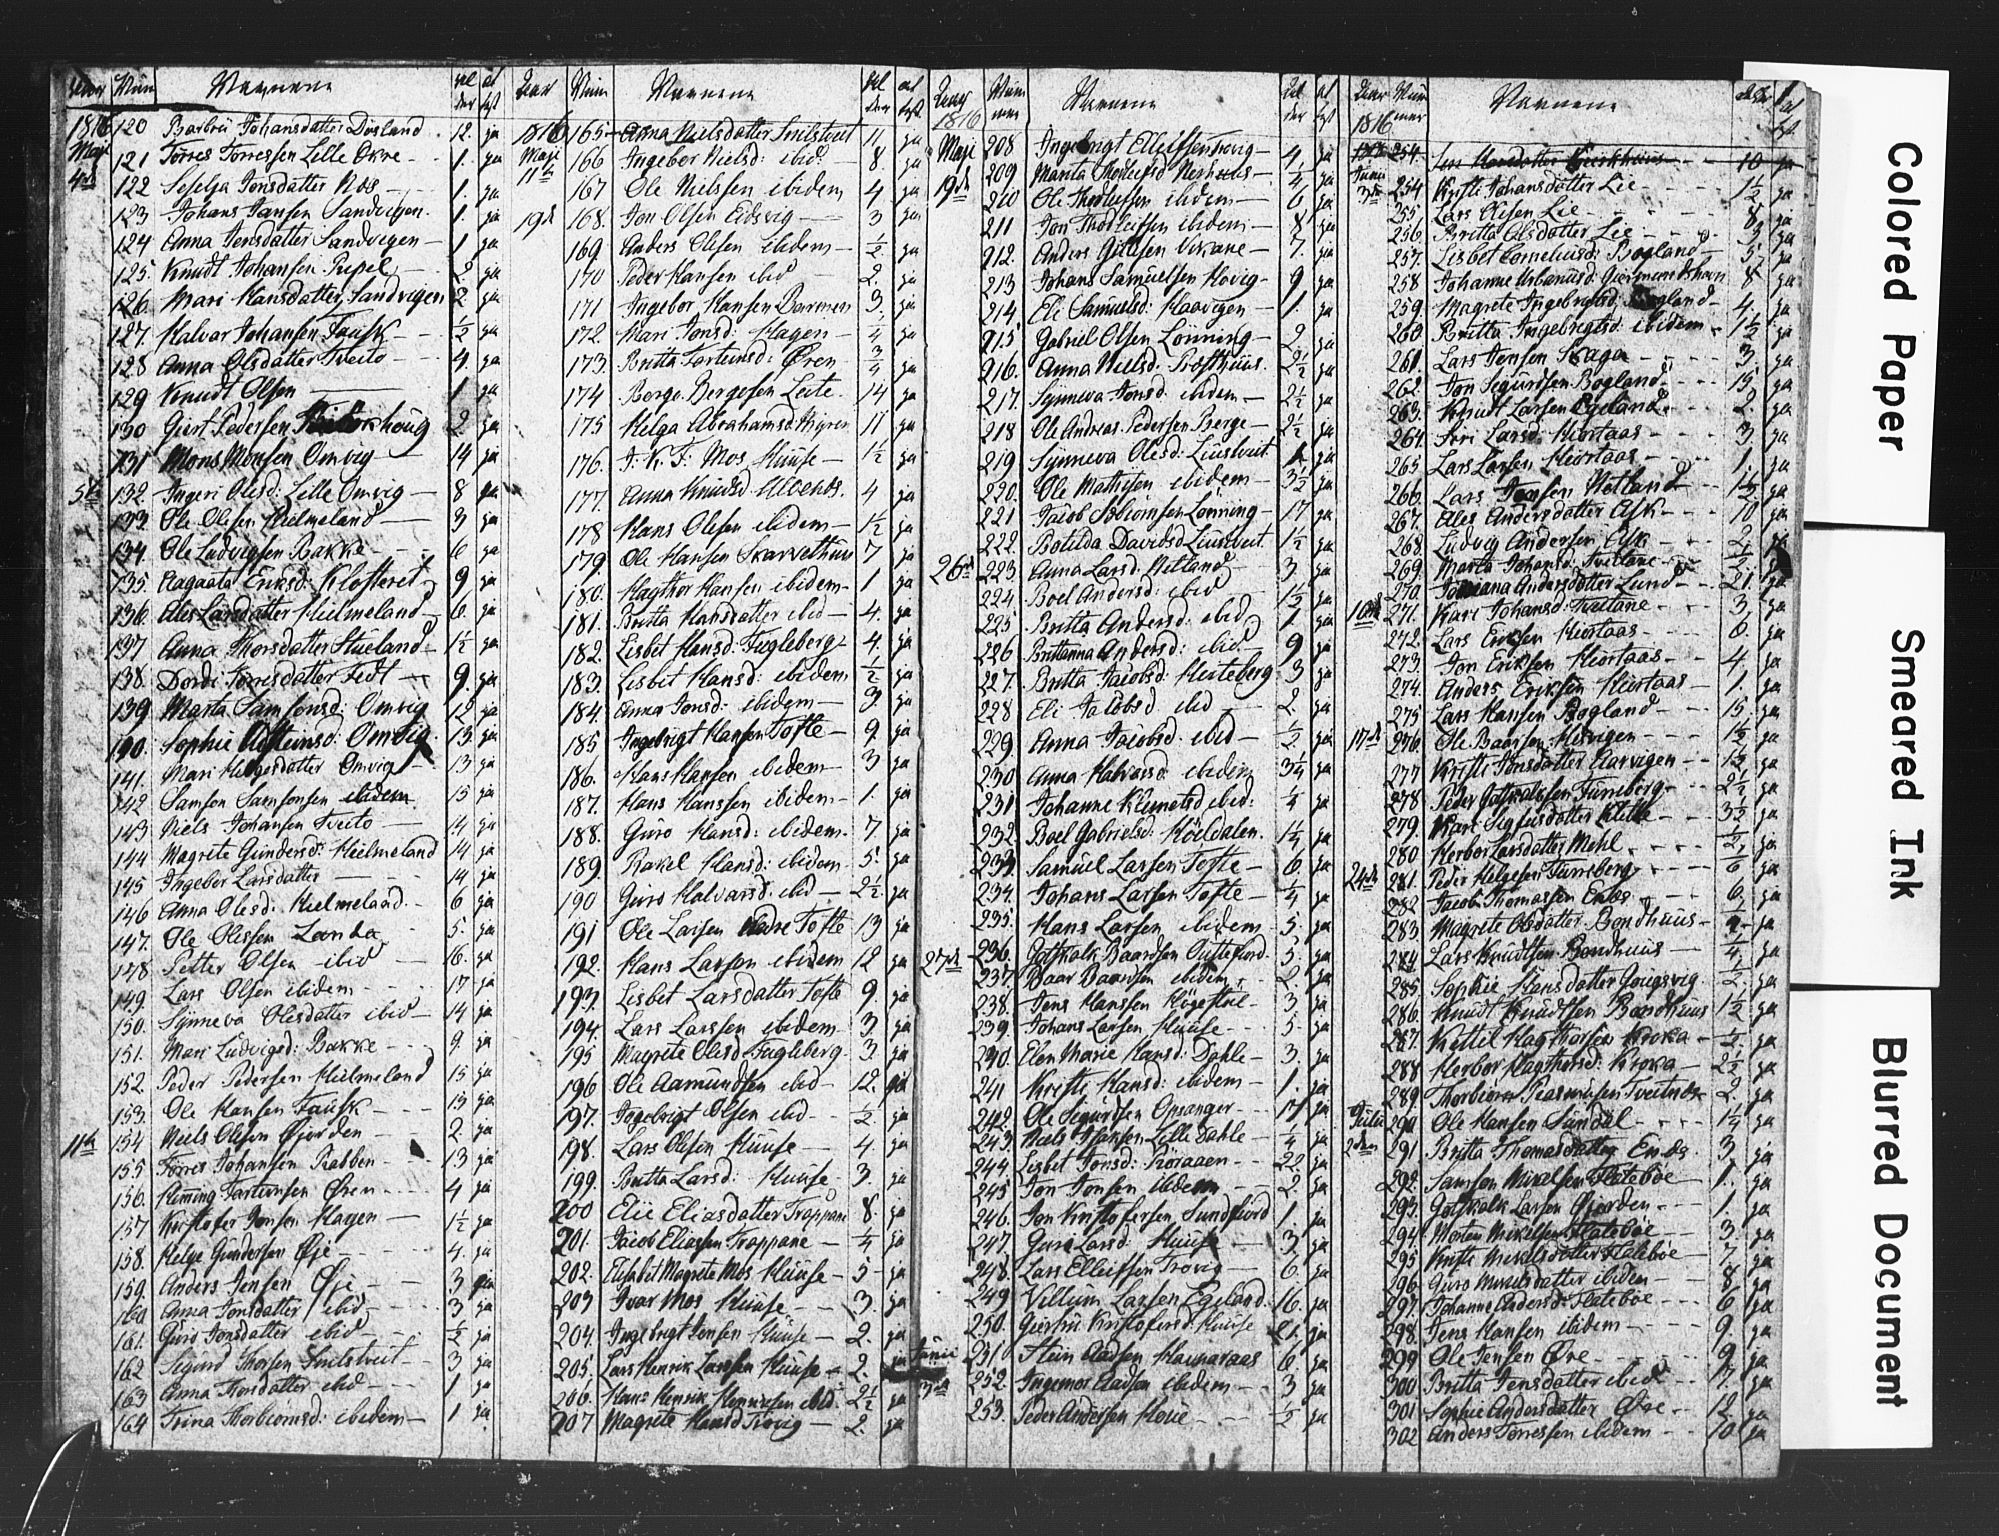 Aar Num Navnene Al der at tyst
1816 120 Barbru Johansdatter Dusland 12. ja
Maji 121 Torres Torressen Lille Okre 1. ja
4de 122 Seselja Jonsdatter Nos 1. ja
123 Johans Jansen Sandvigen 1. ja
124 Anna Jensdatter Sandvigen 1 ja
125. Knudt Johansen Pupel 2. ja
126. Mari Hansdatter Sandvigen 2. ja
127. Halvor Johansen Fausk ½ ja
128 Anna Olsdatter Tveito 4. ja
129 Knudt Olsen 1 ja
130 Giert Pedersen 2 ja
131 Mons Monsen Omvig 14 ja
5te 132. Ingeri Olesd: Lille Omvig 8 ja
133. Ole Olesen Hielmeland 3 ja
134. Ole Ludvigsen Bakke 6 ja
135. Aagaata Eriksd: Klosteret 9 ja
136. Ales Larsdatter Hielmeland 6. ja
137 Anna Thorsdatter Stueland 1½ ja
138. Dordi Torresdatter Fedt 9. ja
139. Marta Samsonsd: Omvig 12 ja
140. Sophie Omvig 13 ja
141. Mari Helgesdatter Omvig 13 ja
142 Samson Samsonsen ibidem 15 ja
143. Niels Johansen Tveito 14 ja
144 Magrete Gundersd: Hielmeland 14 ja
145 Ingeber Larsdatter 14 ja
146 Anna Olesd: Hielmeland 6 ja
147. Ole Olessen Landa 5. ja
148. Petter Olsen ibid 16. ja
149. Lars Olsen ibidem 17 ja
150. Synneva Olesdatter ibid 14 ja
151. Mari Ludvigsd: Bakke 9. ja
152. Peder Pedersen Hielmeland 15 ja
153. Ole Hansen Fausk 13 ja
11te 154 Niels Olsen Gjorden 2. ja
155. Torres Johansen Rabben 13 ja
156. Øren 4 ja
157 Kristofer Jonsen Hagen 1½ ja
158. Helge Gundersen Øje 4. ja
159. Anders Jensen Øje 3 ja
160 Anna Jonsdatter ibid 3 ja
161. Guro Jonsdatter ibid ½ ja
162 Sigurd Thorsen 3 ja
163 Anna Thorsdatter ibid 1 ja
164 Trina Thorbiornsd: ibidem 1 ja
Aar Num Navnene Al der at tyst
1816 165 Anna Nielsdatter 11. ja
Maji 166 Ingebor Nielsd: ibid: 8. ja
11te 167 Ole Nielssen ibidem 4 ja
19de 168. Jon Olsen Eidsvig 3 ja
169. Anders Olesen ibidem ½ ja
170 Peder Hansen ibid 2. ja
171 Ingebor Hansen 3. ja
172. Mari Jonsd: Hagen ¼ ja
173. Britta Torteinsd: Øren ¾ ja
174 Borge Bergesen Leite 14 ja
175 Helga Abrahamsd Myren 11 ja
176. J: K: F: Mos Huuse 1½ ja
177. Anna Knudsd 4 ja
178 Hans Olesen ibidem 1½ ja
179. Ole Hansen Skarvethuus 7 ja
180. Hagthor Hansen ibidem 1 ja
181. Britta Hansdatter ibid 4. ja
182. Lisbet Hansd: Fugleberg 4. ja
183. Lisbet Hansd: ibidem ½ ja
184. Anna Jonsd: ibidem 3. ja
185 Ingebrigt Hansen Tofte 9. ja
186. Hans Hansen ibidem 3 ja
187. Hans Hanssen ibidem 1. ja
188. Guro Hansd: ibidem 7 ja
189 Rakel Hansd: ibidem 5. ja
190 Guro Halvarsd: ibid 2½ ja
191 Ole Larsen Tofte 13 ja
192. Hans Larsen ibidem 12 ja
193. Lisbet Larsdatter Tofte 9. ja
194. Lars Larssen ibidem 3. ja
195 Magrete Olesd. Fugleberg 3. ja
196 Ole Aamundsen ibid 12. ja
197. Ingebrigt Olsen ibid ½ ja
198. Lars Olsen Huuse 4. ja
199 Britta Larsd: Huuse 3. ja
200 Elie Eliasdatter Trappane 8. ja
201. Jacob Eliassen Trappane ¼ ja
202. Elisabet Magrete Mos Huuse 5 ja
203 Ivar Mos Huuse 3. ja
204. Ingebrigt Jonsen Huuse 2. ja
205. Lars Henrik Larssen Huuse 2. ja
206. Hans Henrik Henriksen ibid: 2½ ja
207 Magrete Hansd Trovig 2. ja
Aar 1816 Num mer Navnene Al der at tyst
Maji 208 Ingebrigt Elleifsen Trovig 4 ja
19de 209 Marita Thorleifsd Nerhuus ¼ ja
210 Ole Thorleifsen ibidem 6 ja
211 Jon Thorleifsen ibidem 8 ja
212. Anders Vikane 7. ja
213 Johans Samuelsen Hovig 9 ja
214 Eli Samuelsd: Haavigen 1. ja
215 Gabriel Olsen Lönning 2. ja
216. Anna Nielsd: Prosthuus 2½ ja
217. Synneva Jonsd: ibidem 2½ ja
218 Ole Andreas Pedersen Berge 2½ ja
219 Synneva Olesd: Liustveit 1 ja
220. Ole Mathisen ibidem 3½ ja
221 Jacob Lönning 17 ja
222. Botilda Davidsd Liustveit 1½ ja
26de 223. Anna Larsd: Netland 3 ja
224 Boel Andersd: ibid 1½ ja
225 Britta Andersd: ibid 1 ja
226 Brithanna Andersd: ibid 9 ja
227. Britta Jacobsd: Herteberg 3 ja
228 Eli Jacobsd ibid 2. ja
229. Anna Jacobsd: ibid ½ ja
230 Anna Halvarsd: ibidem 3¼ ja
231 Johanne Klemetsd ibid: ¼ ja
232 Boel Gabrielsd: 1¼ ja
233 Samuel Larsen Tofte 6. ja
234. Johans Larsen Tofte ¼ ja
235. Hans Larsen ibidem 5. ja
27de 236. Gotskalk Baardsen 5. ja
237. Baar Baardsen ibidem 2. ja
238. Jens Hanssen 3. ja
239. Johans Larsen Huuse 5. ja
240. Elen Marie Hansd: Dahle 3. ja
241 Kristi Hansd: ibidem 1. ja
242. Ole Segurdsen Opsanger 17 ja
243. Niels Hansen Lille Dahle ¼ ja
244. Lisbet Jonsd: Röraaen 22. ja
245 Jon Jonsen ibidem 2. ja
246. Jon Kristofersen Sundfiord 1. ja
247. Guri Larsd: Huuse 3. ja
248. Lars Elleifsen Trovig 6. ja
249. Villum Larsen Egeland 16. ja
250. Giertru Kristofersd: Huuse 21. ja
Junii 251 Stein Aadsen 6. ja
3de 252. Ingemor Aadsen ibidem 3 ja
253. Peder Andersen Hoie ½ ja
Aar 1816 Num mer Navnene Alder at tyst
254. 10 ja
Junii 254 Kristi Johansdatter Lie 1½ ja
3de 255. Lars Olesen Lie 8. ja
256. Britta Olsdatter Lie 3 ja
257. Lisbet Corneliusd: Bogland 5. ja
258 Johanne Urbanusd: 8 ja
259. Magrete Ingebrigtsd: 4. ja
260. Britta Ingebrigtsd: ibidem 1½ ja
261. Lars Jensen Skaga 3. ja
262. Jon Segurdsen Bogland 15. ja
263. Knudt Larsen Egeland 2. ja
264. Siri Larsd: Hiortaas 3. ja
265. Lars Larsen Hiortaas 1. ja
266. Lars Jonsen Netland 1½ ja
267. Ales Andersdatter Ask 10. ja
268. Ludvig Andersen Ask 2. ja
269. Marta Johansd: Tveitane ½ ja
270. Andersdatter Lund 21. ja
10de 271. Kari Johansd: Tveitane 3. ja
272. Lars Eriksen Hiortaas 6. ja
273. Jon Eriksen Hiortaas 4 ja
274. Anders Eriksen Hiortaas 1. ja
275. Lars Hansen Bogland 15. ja
17de 276. Ole Baarsen 1½ ja
277 Kristi Jonsdatter Aarvigen 1½ ja
278 Peder Gotskalksen Tunsberg 2½ ja
279. Kari Sigfusdatter Klette 3½ ja
280 Herbor Larsdatter Mehl ½ ja
24de 281. Peder Helgesen Tunsberg 6 ja
282. Jacob Thomassen Enes 6. ja
283 Magrete Olsdatter Bondhuus ja
284 Lars Knudtsen Bondhuus ¼ ja
285. Sophie Hansdatter ½ ja
286. Knudt Knudtsen Bondhuus 1½ ja
287. Kettil Hagthorsen Kroka ½ ja
288 Herbor Hagthorsd: Kroka 2½ ja
289. Thorbiörn 2. ja
Julii 290 Ole Hansen Sundal 1¼ ja
2den 291 Britta Thomasdatter Enes 3 ja
292. Samson Mikelsen Flatebøe 1. ja
293. Gotskalk Larsen Gjerden 1. ja
294. Morten Mikelsen Flatebøe 3. ja
295 Kristi Mikelsdatter Flatebøe 7 ja
296. Guro Mikelsdatter ibidem 8 ja
297. Johanne Andersd: Flatebøe 6 ja
298. Jens Hansen ibidem 9. ja
299 Ole Jensen Øre 9. ja
300 Britta Jensdatter ibid 7. ja
301. Sophie Andersdatter Øre 12 ja
302 Anders Torressen ibidem 10 ja
Colored Paper
Smeared Ink
Blurred Document